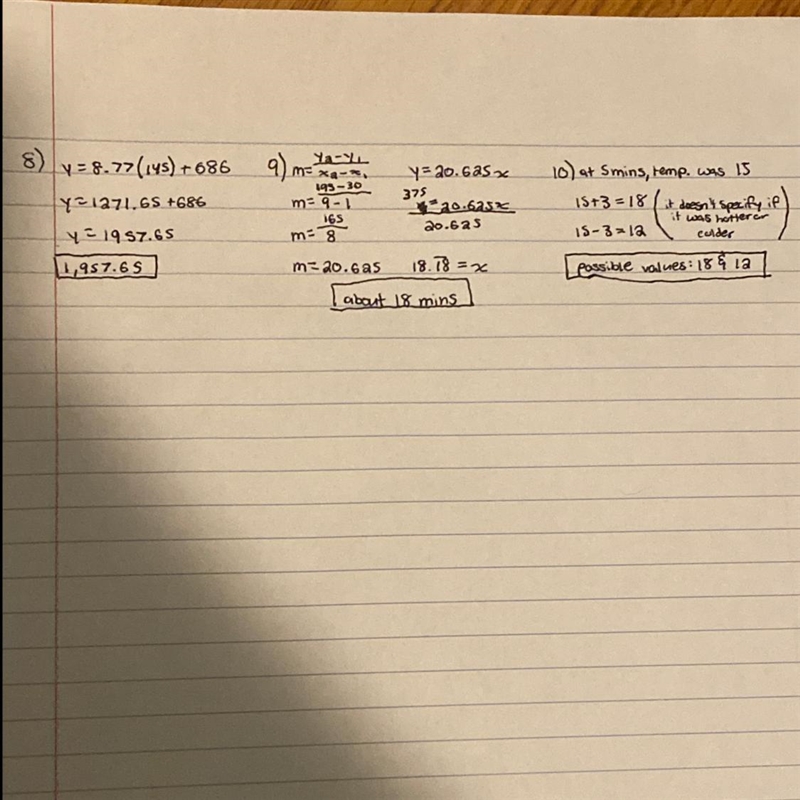 8) y = 8.77(145) + 686
y = 1271.65 + 686
y = 1957.65
1,957.65
9) m = y₂-y₁ / x₂-x₁
m = 195-30 / 9-1
m = 165 / 8
m = 20.625
y = 20.625x
375 = 20.625x
20.625
18.1̅8̅ = x
about 18 mins
10) at 5mins, temp. was 15
15+3 = 18
15-3 = 12
(it doesn't specify if
it was hotter or
colder)
possible values: 18 & 12